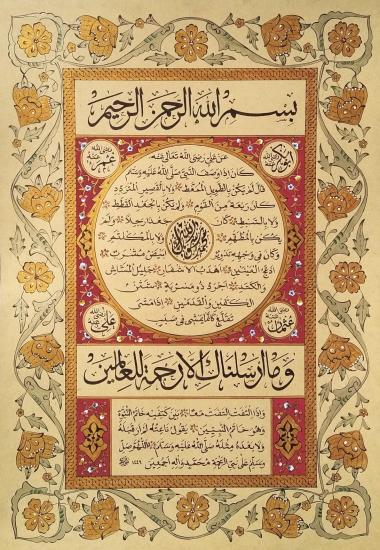 بسم الله الرحمن الرحيم
ابو بكر رضي الله عنه
عمر رضي الله عنه
عن علي رضي الله تعالى عنه
كان اذا وصف النبي صلى الله عليه وسلم
قال لم يكن بالطويل الممغط ولا بالقصير المتردد
كان ربعة من القوم ولم يكن بالجعد القطط
ولا بالسبط كان جعدا رجلا ولم
يكن بالمطهم ولا بالمكلثم
وكان في وجهه تدوير ابيض مشرب
ادعج العينين اهدب الاشفار جليل المشاش
والكتد اجرد ذو مسربة شثن
الكفين والقدمين اذا مشى
تقلع كانما يمشي في صبب
عثمان رضي الله عنه
علي رضي الله عنه
وما ارسلناك الا رحمة للعالمين
واذا التفت التفت معا بين كتفيه خاتم النبوة
وهو خاتم النبيين يقول ناعته لم ار قبله
ولا بعده مثله صلى الله عليه وسلم اللهم صل
وسلم على نبي الرحمة محمد واله اجمعين